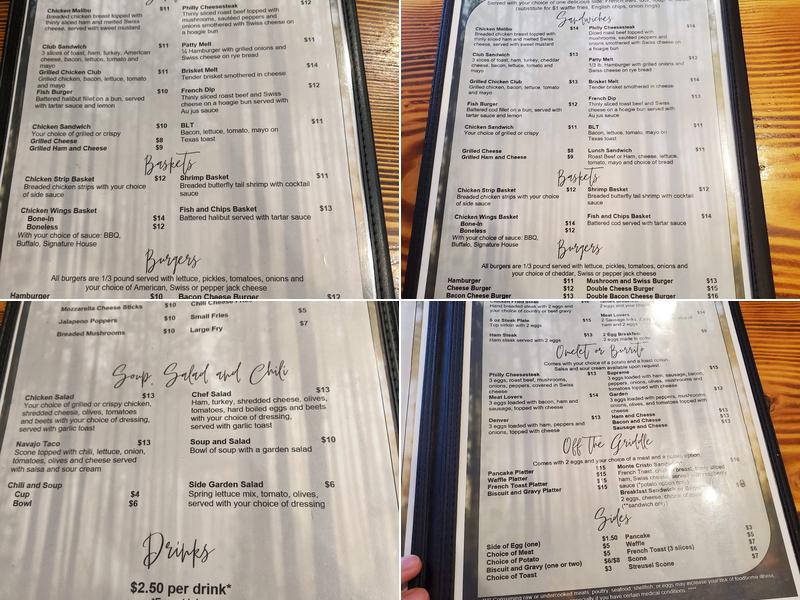 Chicken Malibu $11
Breaded chicken breast topped with
thinly sliced ham and melted Swiss
cheese, served with sweet mustard
Club Sandwich $11
3 slices of toast, ham, turkey, American
cheese, bacon, lettuce, tomato and
mayo
Grilled Chicken Club $11
Grilled chicken, bacon, lettuce, tomato
and mayo
Fish Burger $10
Battered halibut fillet on a bun, served
with tartar sauce and lemon
Chicken Sandwich $10
Your choice of grilled or crispy
Grilled Cheese $8
Grilled Ham and Cheese $9
Philly Cheesesteak $12
Thinly sliced roast beef topped with
mushrooms, sautéed peppers and
onions smothered with Swiss cheese on
a hoagie bun
Patty Melt $11
¼ Hamburger with grilled onions and
Swiss cheese on rye bread
Brisket Melt $14
Tender brisket smothered in cheese
French Dip $12
Thinly sliced roast beef and Swiss
cheese on a hoagie bun served with
Au jus sauce
BLT $11
Bacon, lettuce, tomato, mayo on
Texas toast
Baskets
Chicken Strip Basket $12
Breaded chicken strips with your choice
of side sauce
Chicken Wings Basket
Bone-In $14
Boneless $12
With your choice of sauce: BBQ,
Buffalo, Signature House
Shrimp Basket $11
Breaded butterfly tail shrimp with cocktail
sauce
Fish and Chips Basket $13
Battered halibut served with tartar sauce
Burgers
All burgers are 1/3 pound served with lettuce, pickles, tomatoes, onions and
your choice of American, Swiss or pepper jack cheese
Hamburger $10 Bacon Cheese Burger $12
(substitute for $1 waffle fries, English chips, onion rings)
Sandwiches
Chicken Malibu $14
Breaded chicken breast topped with
thinly sliced ham and melted Swiss
cheese, served with sweet mustard
Club Sandwich $13
3 slices of toast, ham, turkey, cheddar
cheese, bacon, lettuce, tomato and
mayo
Grilled Chicken Club $13
Grilled chicken, bacon, lettuce, tomato and
mayo
Fish Burger $12
Battered cod fillet on a bun, served with
tartar sauce and lemon
Chicken Sandwich $11
Your choice of grilled or crispy
Grilled Cheese $8
Grilled Ham and Cheese $9
Philly Cheesesteak $14
Diced roast beef topped with
mushrooms, sautéed peppers and
onions smothered with Swiss cheese on
a hoagie bun
Patty Melt $12
1/3 lb. Hamburger with grilled onions and
Swiss cheese on rye bread
Brisket Melt $14
Tender brisket smothered in cheese
French Dip $13
Thinly sliced roast beef and Swiss
cheese on a hoagie bun served with
Au jus sauce
BLT $11
Bacon, lettuce, tomato, mayo on
Texas toast
Lunch Sandwich $11
Roast Beef or Ham, cheese, lettuce,
tomato, mayo and choice of bread
Baskets
Chicken Strip Basket $12
Breaded chicken strips with your choice
of side sauce
Chicken Wings Basket
Bone-In $14
Boneless $12
With your choice of sauce: BBQ,
Buffalo, Signature House
Shrimp Basket $12
Breaded butterfly tail shrimp with cocktail
sauce
Fish and Chips Basket $14
Battered cod served with tartar sauce
Burgers
All burgers are 1/3 pound served with lettuce, pickles, tomatoes, onions and
your choice of cheddar, Swiss or pepper jack cheese
Hamburger $11 Mushroom and Swiss Burger $13
Cheese Burger $12 Double Cheese Burger $15
Bacon Cheese Burger $13 Double Bacon Cheese Burger $16
Mozzarella Cheese Sticks $10
Jalapeno Poppers $10
Breaded Mushrooms $10
Chili Cheese Fries
Small Fries $5
Large Fry $7
Soup, Salad and Chili
Chicken Salad $13
Your choice of grilled or crispy chicken,
shredded cheese, olives, tomatoes
and beets with your choice of dressing,
served with garlic toast
Navajo Taco $13
Scone topped with chili, lettuce, onion,
tomatoes, olives and cheese served
with salsa and sour cream
Chili and Soup
Cup $4
Bowl $6
Chef Salad $13
Ham, turkey, shredded cheese, olives,
tomatoes, hard boiled eggs and beets
with your choice of dressing,
served with garlic toast
Soup and Salad $10
Bowl of soup with a garden salad
Side Garden Salad $6
Spring lettuce mix, tomato, olives,
served with your choice of dressing
Drinks
$2.50 per drink*
Hand breaded steak with 2 eggs and your
choice of country or beef gravy
6 oz Steak Plate $15
Top sirloin with 2 eggs
Ham Steak $13
Ham steak served with 2 eggs
Meat Lovers $14
ham and 2 eggs
2 Egg Breakfast
Omelet or Burrito
Comes with your choice of a potato and a toast option.
Salsa and sour cream available upon request
Philly Cheesesteak $13
3 eggs, roast beef, mushrooms,
onions, peppers, covered in Swiss
cheese
Meat Lovers $14
3 eggs loaded with bacon, ham and
sausage, topped with cheese
Denver $13
3 eggs loaded with ham, peppers and
onions, topped with cheese
Supreme $15
3 eggs loaded with ham, sausage, bacon,
peppers, onions, olives, mushrooms and
tomatoes topped with cheese
Garden $12
3 eggs loaded with peppers, mushrooms,
onions, olives, and tomatoes topped with
cheese
Ham and Cheese $13
Bacon and Cheese $13
Sausage and Cheese $13
Off the Griddle
Comes with 2 eggs and your choice of a meat and a potato option.
Pancake Platter $15
Waffle Platter $15
French Toast Platter $15
Biscuit and Gravy Platter
Monte Cristo Sandwich
Sides
Side of Egg (one) $1.50
Choice of Meat $5
Choice of Potato $5
Biscuit and Gravy (one or two) $6/$8
Choice of Toast $3
Pancake $3
Waffle $5
French Toast (3 slices) $7
Scone $6
Streusel Scone $7